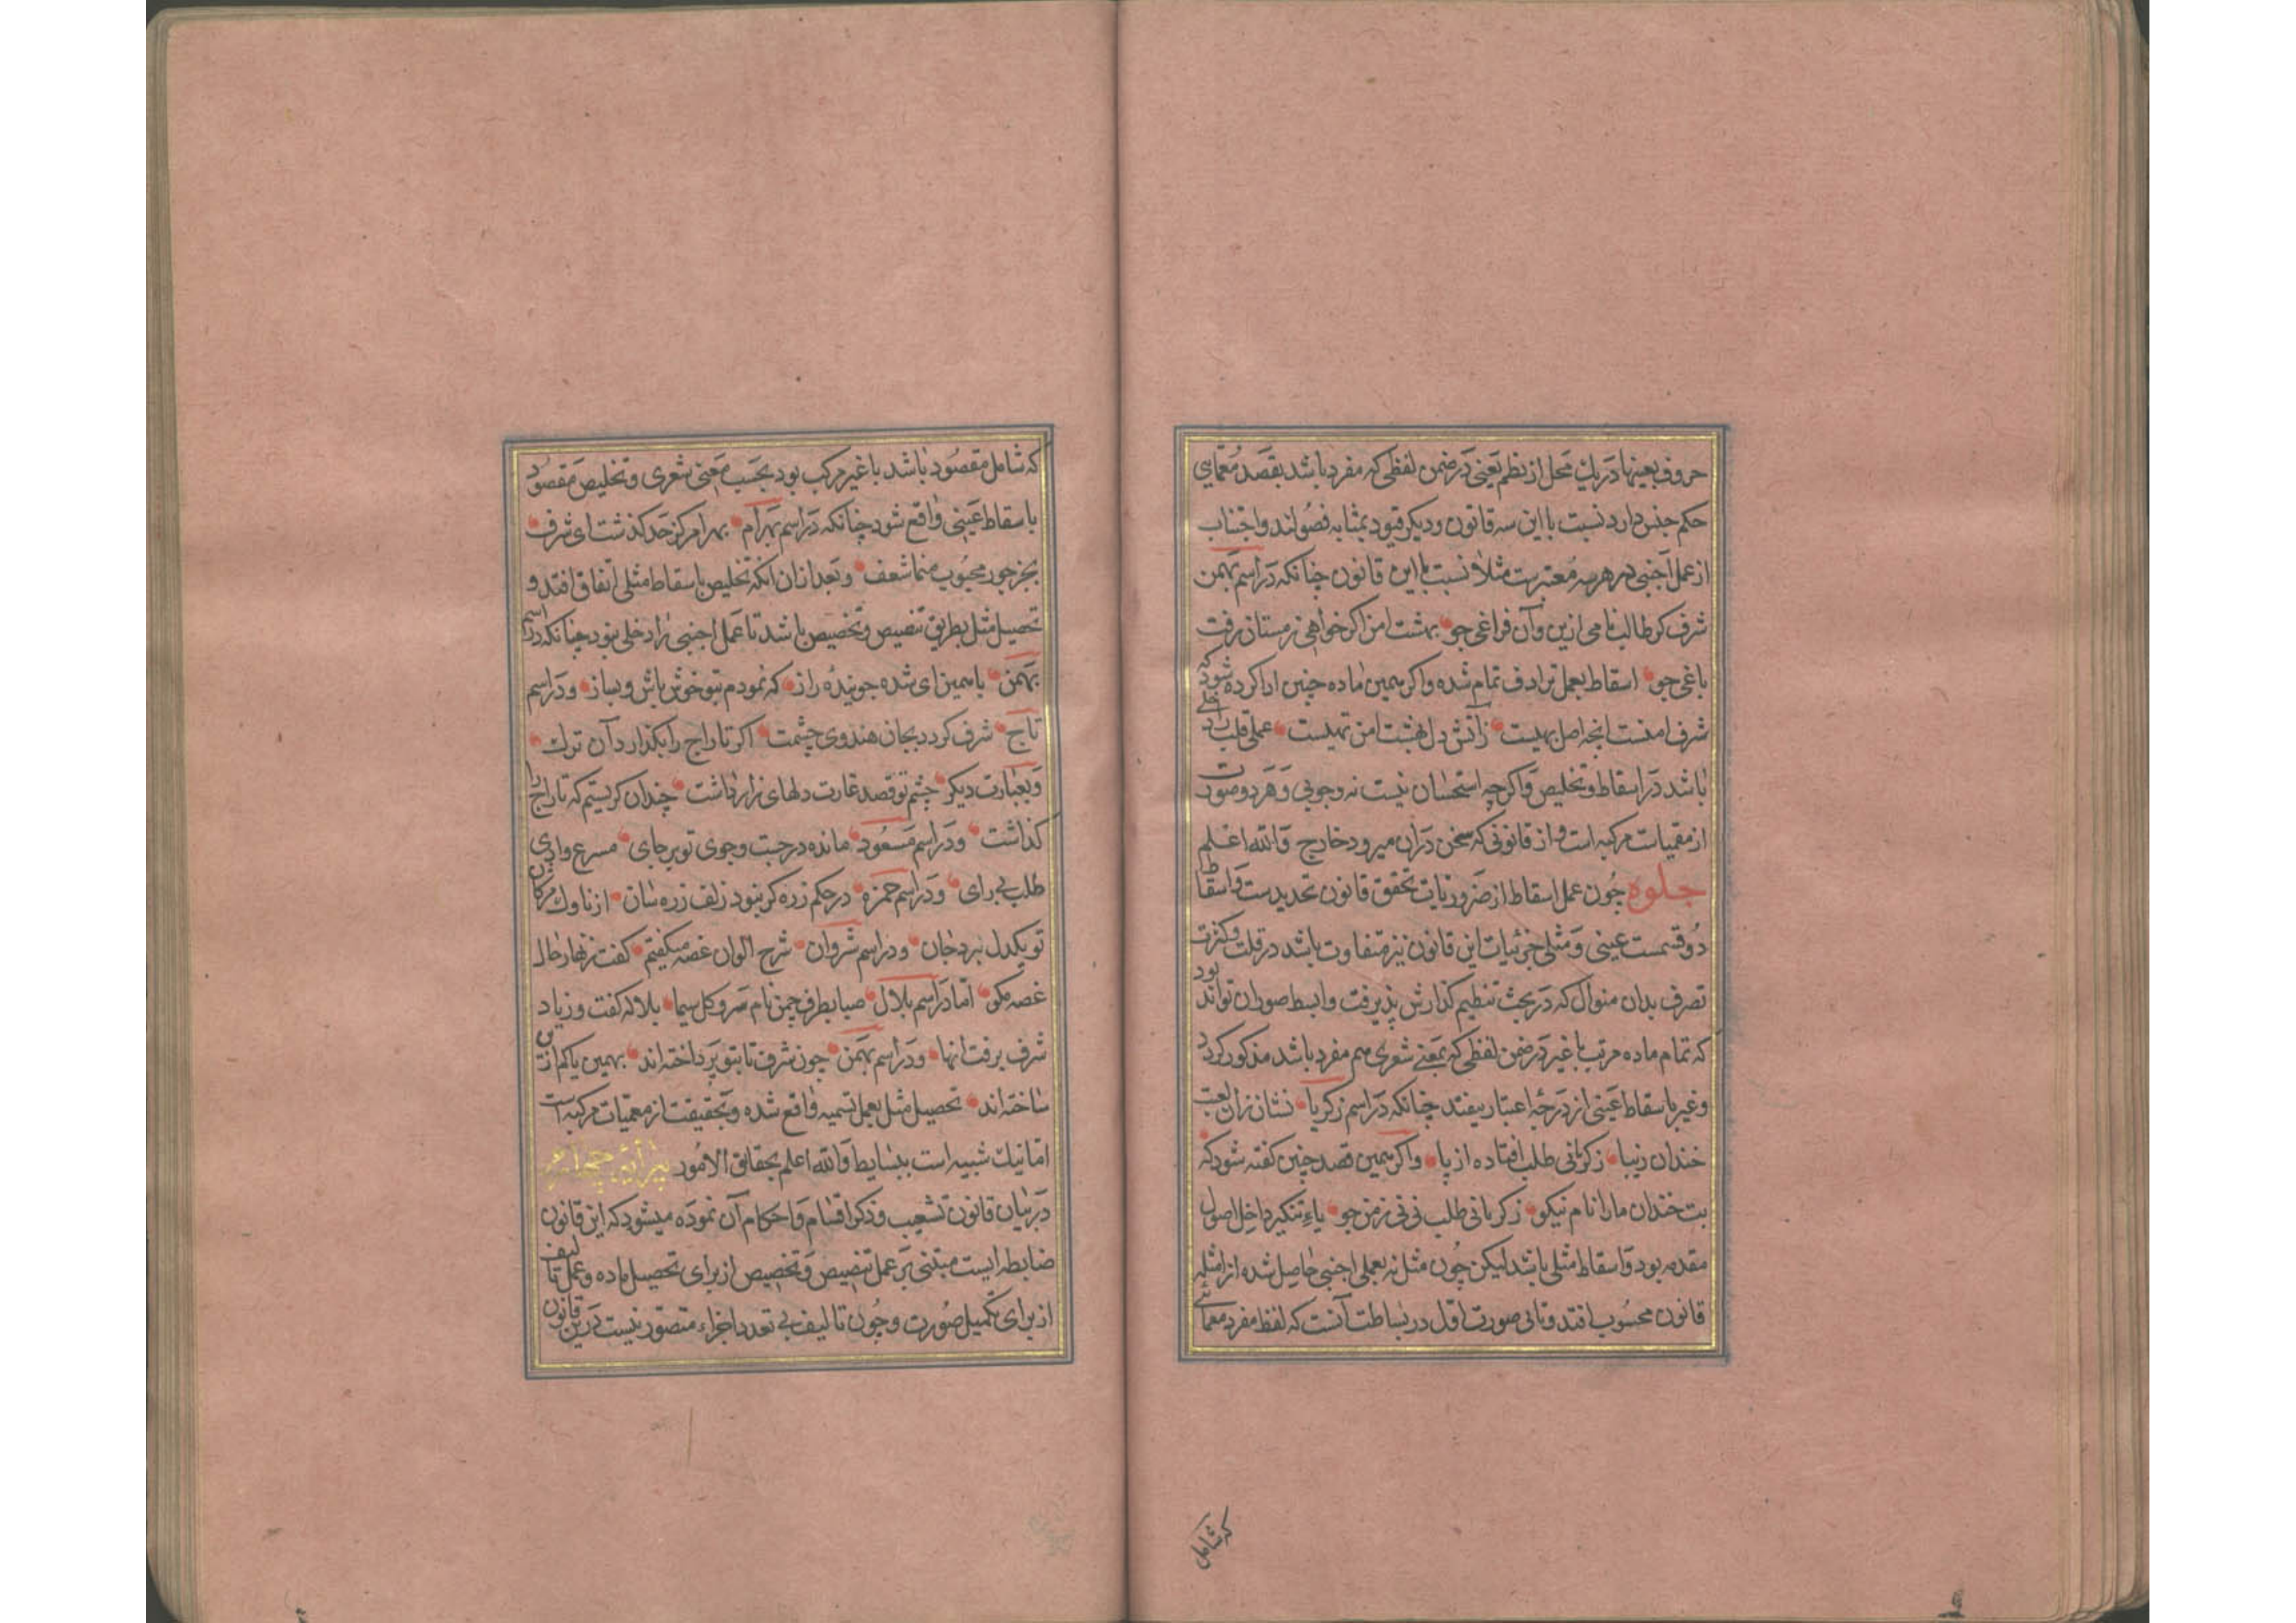 حروف بعینها در یك محل از نظم یعنی در ضمن لفظی که مفرد باشد بقصد معمایی
حکم جنس دارد نسبت با این سه قانون و دیکر قیود بمثابه فصول‌اند و اجتناب
از عمل اجنبی در هر سه معتبرست مثلا نسبت با این قانون چنانکه در اسم بهمن
شرف کر طالب نامی ازین و آن فراغی جو بهشت امن اکر خواهی زمستان رفت
باغی جو اسقاط بعمل ترادف تمام شده و اکر همین ماده چنین ادا کرده شود که
شرف امنست انچه اصل بهیست ز آتش دل بهشت امن تهیست عمل قلب را دخلی
باشد در اسقاط و تخلیص و اکر چه استحسان نیست نه وجوبی و هر دو صورت
از معمیات مرکبه است و از قانونی که سخن در ان میرود خارج والله اعلم
جلوه چون عمل اسقاط از ضروریات تحقق قانون تحدیدست و اسقاط
دو قسمست عینی و مثلی جزئیات این قانون نیز متفاوت باشد در قلت و کثرت
تصرف بدان منوال که در بحث تنظیم کذارش پذیرفت و ابسط صور ان تواند بود
که تمام ماده مرتب با غیر در ضمن لفظی که بمعنی شعری هم مفرد باشد مذکور کردد
و غیر باسقاط عینی از درجه اعتبار بیفتد چنانکه در اسم زکریا نشان زان لعبت
خندان زیبا ز کریانی طلب افتاده از پا و اکر همین قصد چنین کفته شود که
بت خندان ما را نام نیکو ز کریانی طلب نی نی ز من جو یاء تنکیر داخل اصول
مقدمه بود و اسقاط مثلی باشد لیکن چون مثل نه بعملی اجنبی حاصل شده از امثله
قانون محسوب افتد و ثانی صورت اول در بساطت آنست که لفظ مفرد معمائی
که شامل
که شامل مقصود باشد با غیر مرکب بود بحسب معنی شعری و تخلیص مقصود
باسقاط عینی واقع شود چنانکه در اسم بهرام بهرام کز حد کذشت ای شرف
بجز جور محبوب منما شعف و بعد از ان انکه تخلیص باسقاط مثلی اتفاق افتد و
تحصیل مثل بطریق تنصیص و تخصیص باشد تا عمل اجنبی را دخلی نبود چنانکه در اسم
بهمن با همین ای شده جوینده راز که نمودم بتو خوش باش و بساز و در اسم
تاج شرف کردد بجان هندوی چشمت اکر تاراج را بکذارد آن ترك
و بعبارت دیکر چشم تو قصد غارت دلهای زار داشت چندان کریستم که تاراج را
کذاشت و در اسم مسعود مانده در جست و جوی تو بر جای مسرع وادی
طلب بی رای و در اسم حمزه در حکم زره کر نبود زلف زره سان از ناوك مژکان
تو یکدل نبرد جان و در اسم شروان شرح الوان غصه میکفتم کفت زنهار حال
غصه مکو اما در اسم بلال صبا بطرف چمن نام سرو کل سیما بلاله کفت و زیاد
شرف برفت انها و در اسم بهمن چون شرف تا بتو پرداخته‌اند بهمین یا کم ازین
ساخته‌اند تحصیل مثل بعمل تسمیه واقع شده و بحقیقت از معمیات مرکبه است
اما نیك شبیه است ببسایط والله اعلم بحقایق الامور پیرایه چهارم
در بیان قانون تشعیب و ذکر اقسام و احکام آن نموده میشود که این قانون
ضابطه ایست مبتنی بر عمل تنصیص و تخصیص از برای تحصیل ماده و عمل تالیف
از برای تکمیل صورت و چون تالیف بی تعدد اجزاء متصور نیست درین قانون